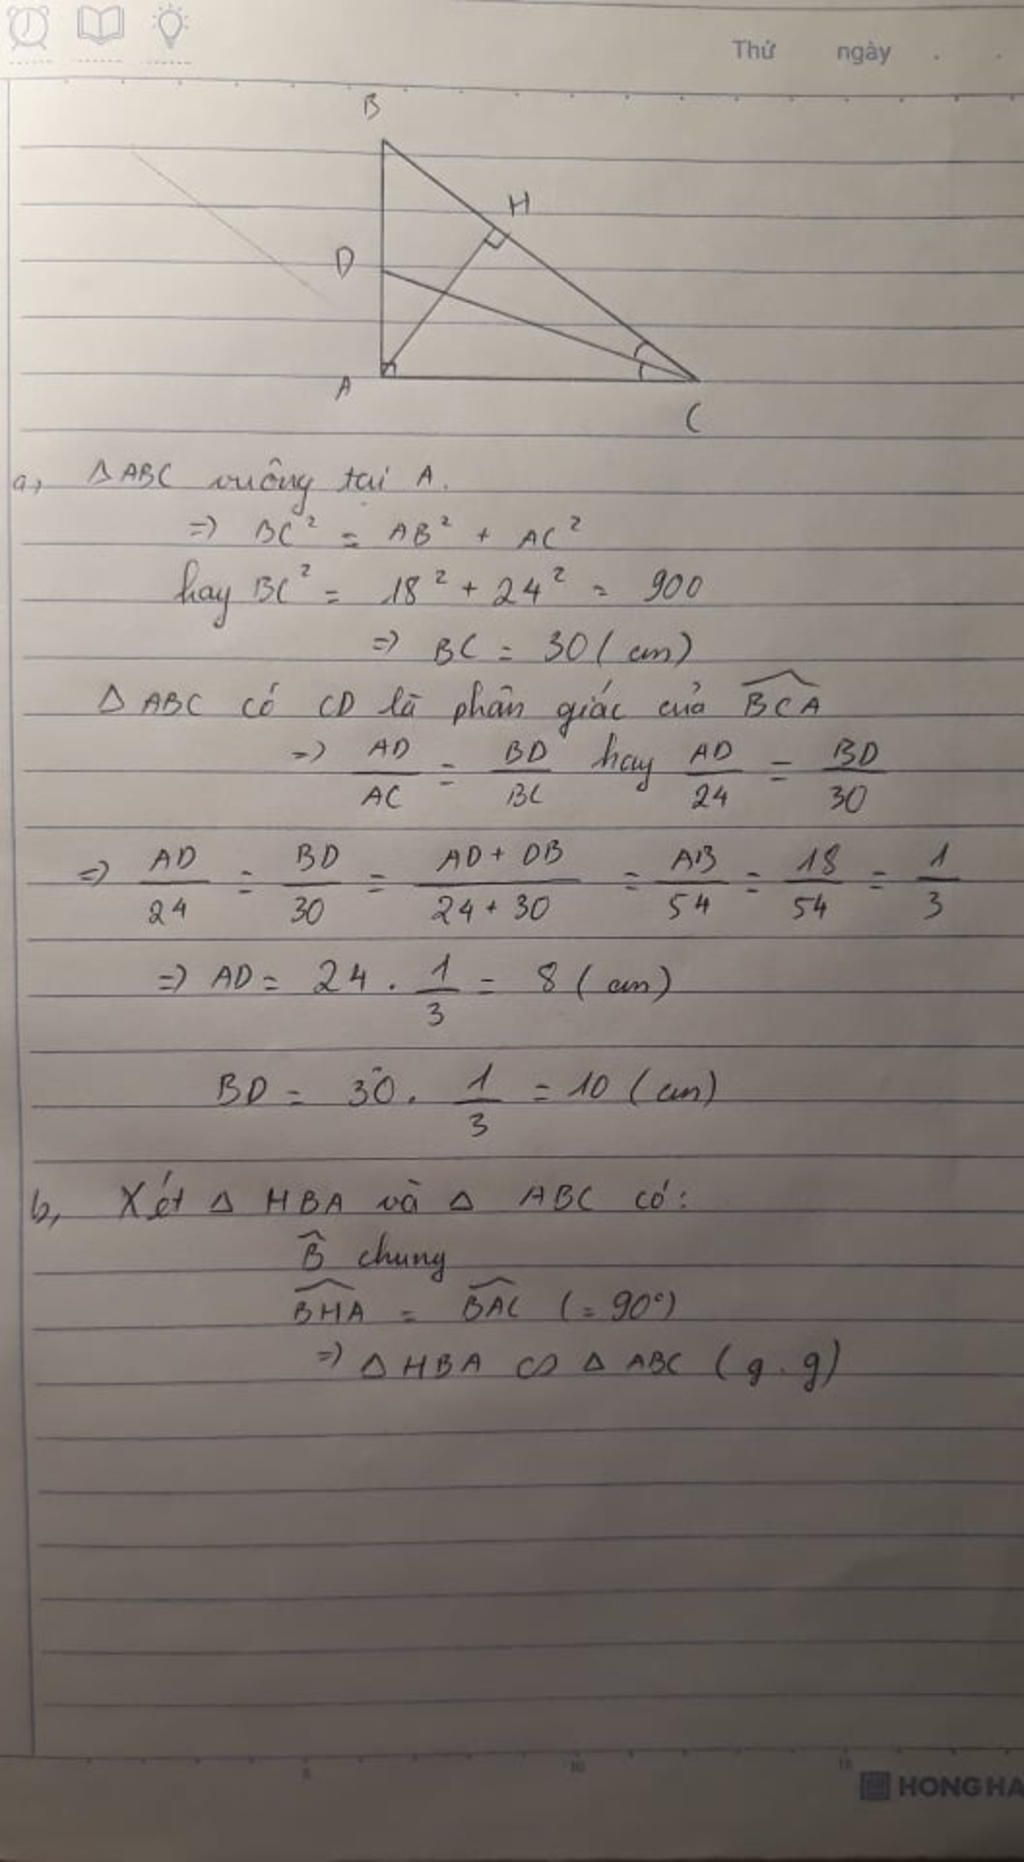 Thứ ngày
B
H
D
A
C
a, Δ ABC vuông tại A.
=> BC² = AB² + AC²
hay BC² = 18² + 24² = 900
=> BC = 30 (cm)
Δ ABC có CD là phân giác của \widehat{BCA}
=> AD/AC = BD/BC hay AD/24 = BD/30
=> AD/24 = BD/30 = (AD + DB)/(24 + 30) = AB/54 = 18/54 = 1/3
=> AD = 24 . 1/3 = 8 (cm)
BD = 30 . 1/3 = 10 (cm)
b, Xét Δ HBA và Δ ABC có:
\widehat{B} chung
\widehat{BHA} = \widehat{BAC} (= 90°)
=> Δ HBA ∽ Δ ABC (g.g)
5 10 15
HONG HA